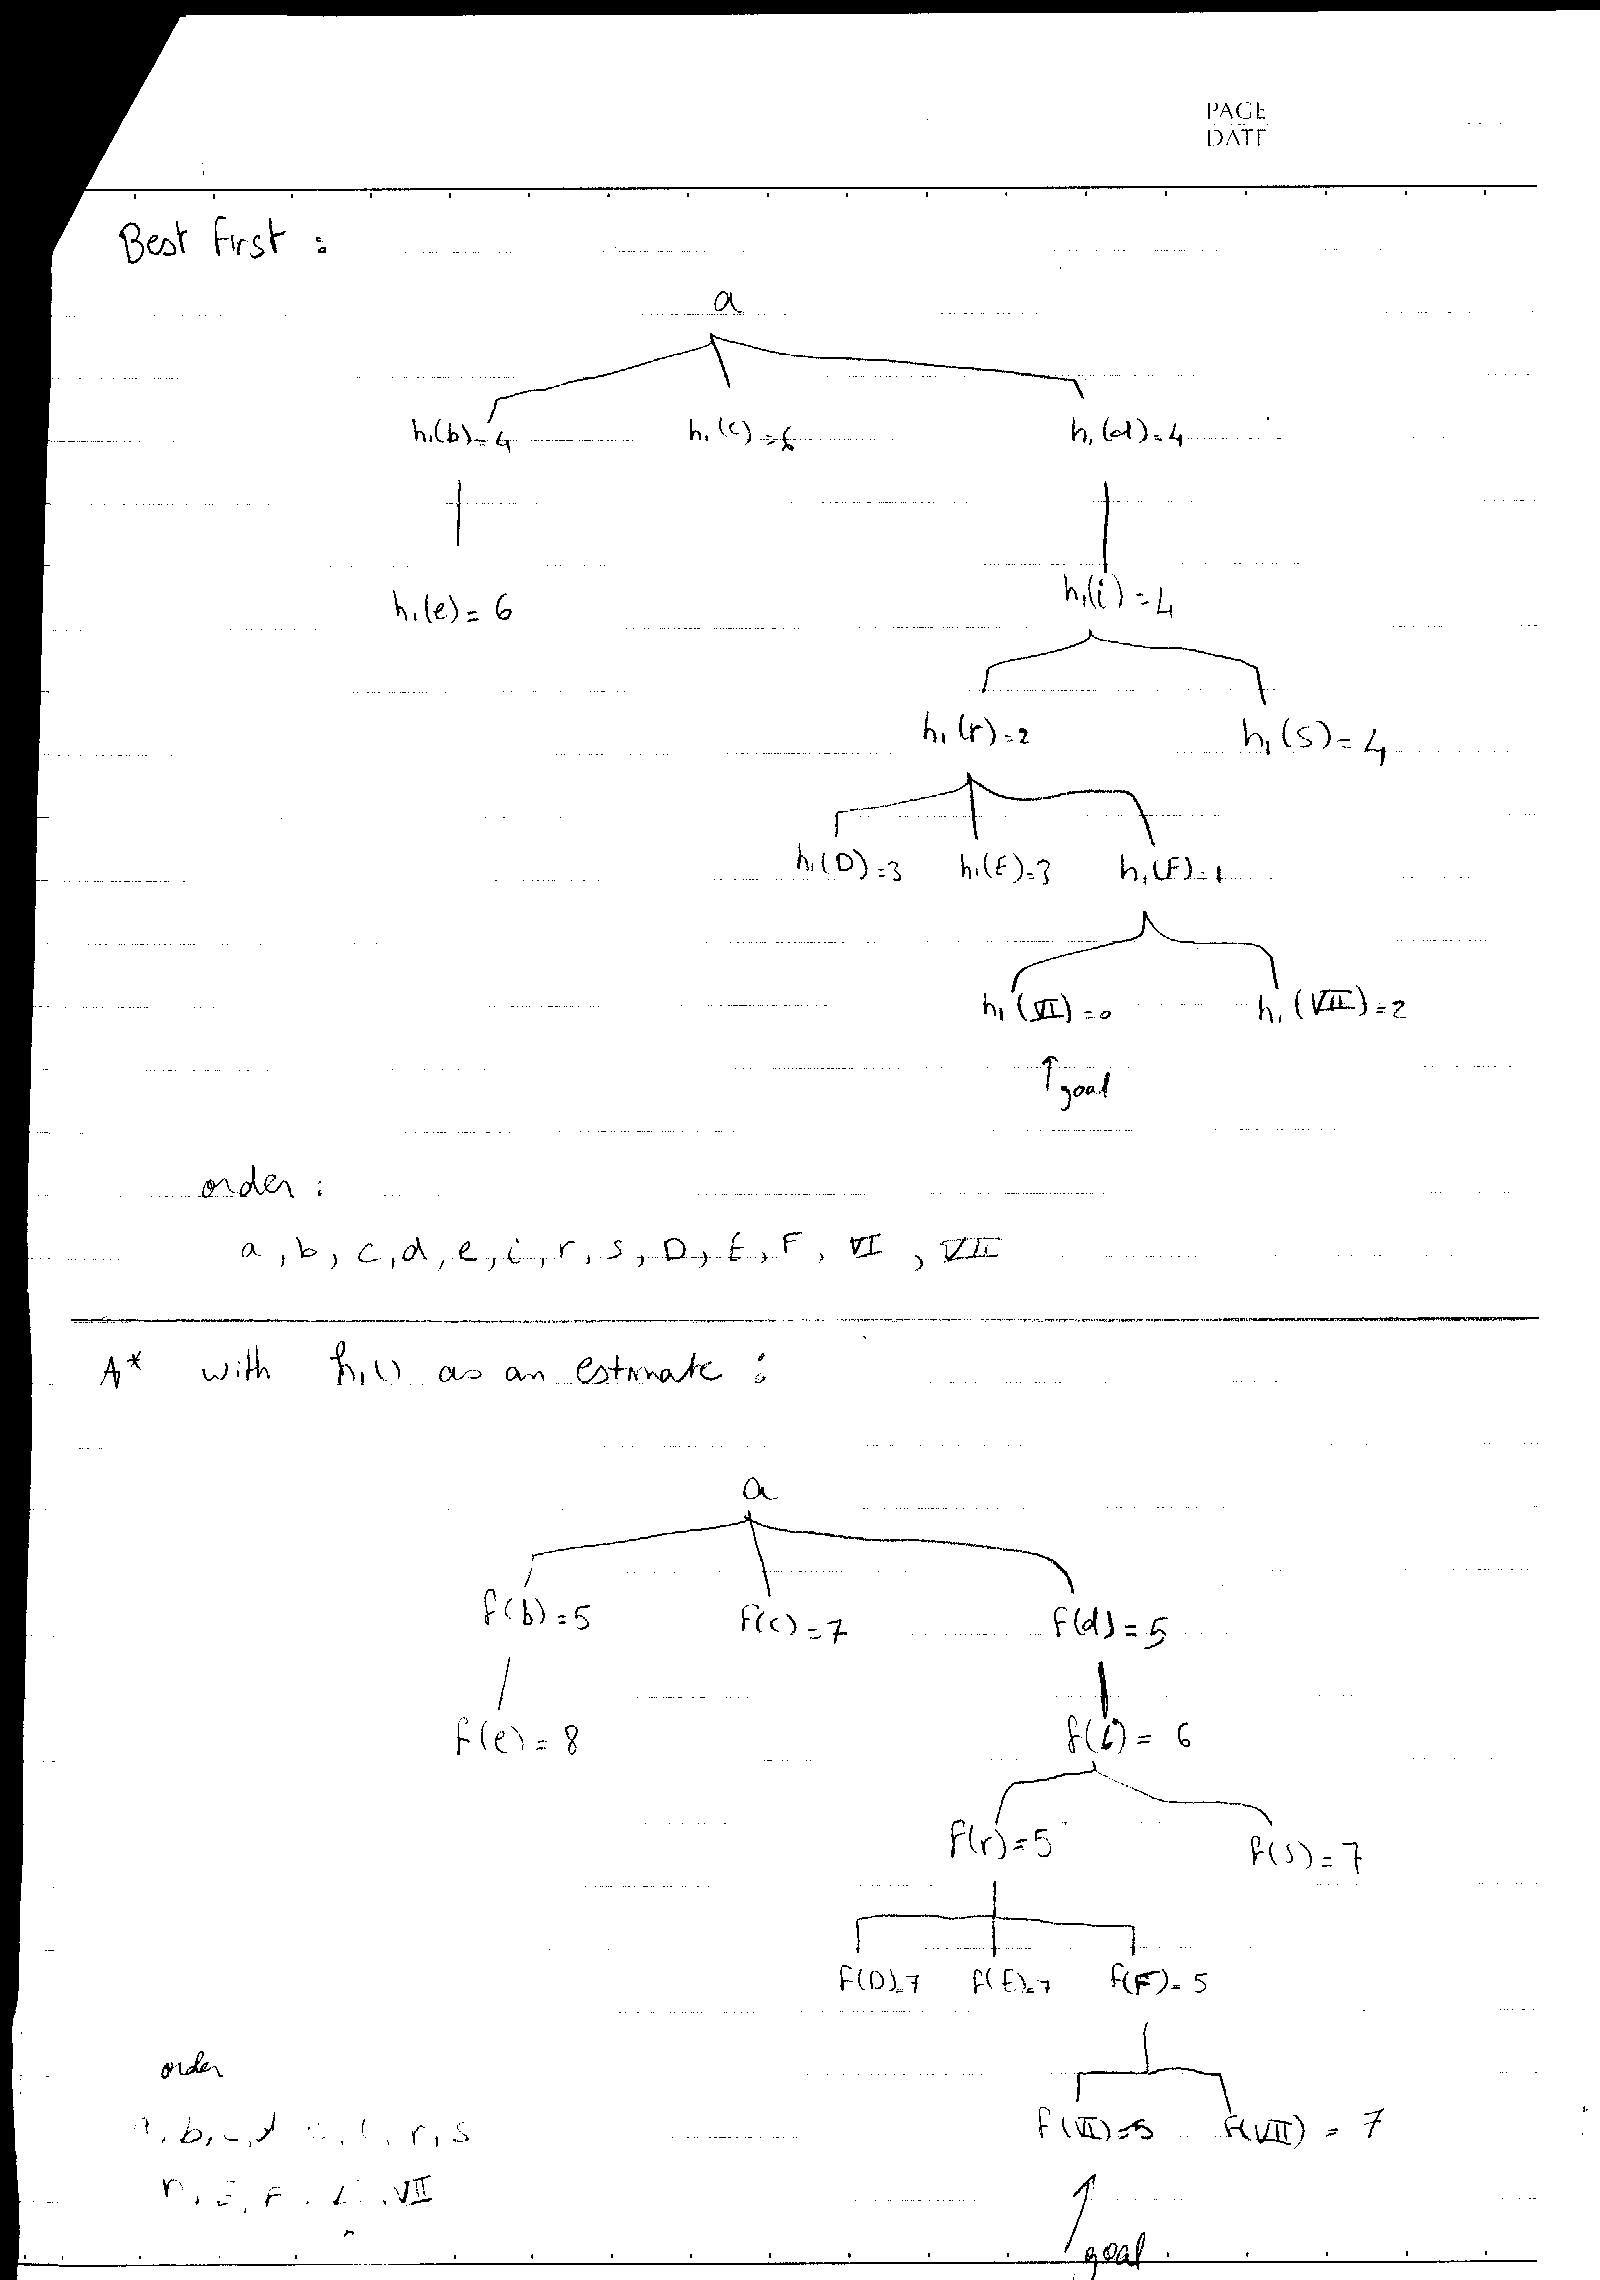 PAGE
DATE
Best First :
a
h₁(b)=4 h₁(c)=6 h₁(d)=4
h₁(e)=6 h₁(i)=4
h₁(r)=2 h₁(S)=4
h₁(D)=3 h₁(E)=3 h₁(F)=1
h₁(VI)=0 h₁(VII)=2
↑goal
order :
a, b, c, d, e, i, r, s, D, E, F, VI, VII
A* with h₁() as an estimate :
a
f(b)=5 f(c)=7 f(d)=5
f(e)=8 f(i)=6
f(r)=5 f(S)=7
f(D)=7 f(E)=7 f(F)=5
order
f(VI)=5 f(VII)=7
r, s
VII
goal